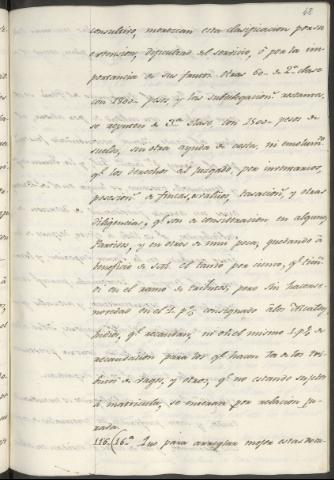 42
consultivo, merezcan esta clasificacion por su
extension, dificultad del servicio, ó por la im-
portancia de sus funcio.s Otras 60. de 2.ª clase
con 1800. pesos y las subdelegacion.s restantes
se reputen de 3.ª clase con 1500. pesos de
sueldo, sin otra ayuda de costa, ni emolum.to
q.e los derechos de juzgado, por inventarios,
posecion.s de fincas, avaluo, tasacion.s y otras
diligencias, q.e son de consideracion en algunos
Partidos, y en otros de muy poca, quedando à
beneficio de la el tanto por ciento, q.e tien.n
en el ramo de tributos; pero sin hacerse
novedad en el 1. p.% consignado à los Alcaldes
Indios, q.e recaudan, ni en el mismo 1. p.% de
recaudacion para los q.e hacen la de los tri-
butos de vagos, y otros, q.e no estando sujetos
à matricula, se enteran por relacion ju-
rada.
116. (16.ª Que para arreglar mejor estas dota-